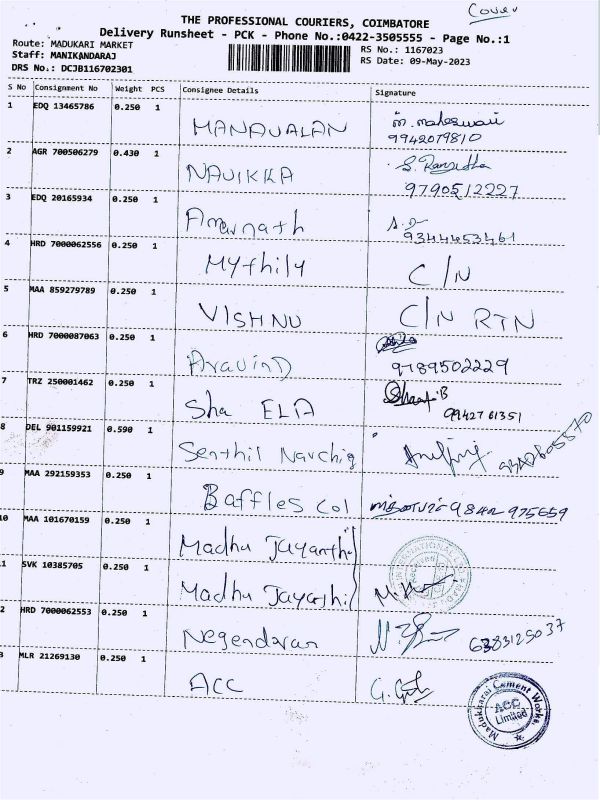 Cover
THE PROFESSIONAL COURIERS, COIMBATORE
Delivery Runsheet - PCK - Phone No.:0422-3505555 - Page No.:1
Route: MADUKARI MARKET
RS No.: 1167023
Staff: MANIKANDARAJ
RS Date: 09-May-2023
DRS No.: DCJB116702301
S No Consignment No Weight PCS Consignee Details Signature
1 EDQ 13465786 0.250 1
MANAVALAN m. maheswari
9942079810
2 AGR 700506279 0.430 1
NAVIKKA S. Ranjitha
9790512227
3 EDQ 20165934 0.250 1
Amarnath
9344453461
4 HRD 7000062556 0.250 1
Mythily C/N
5 MAA 859279789 0.250 1
VISHNU C/N RTN
6 HRD 7000087063 0.250 1
Aravind 9789502229
7 TRZ 250001462 0.250 1
Sha ELIA 9942761351
8 DEL 901159921 0.590 1
Senthil
9 MAA 292159353 0.250 1
Baffles Col 9842 975659
10 MAA 101670159 0.250 1
Madhu Jayanthi
1 SVK 10385705 0.250 1
Madhu
2 HRD 7000062553 0.250 1
Negendaran 6383125037
3 MLR 21269130 0.250 1
ACC
Madukkarai Cement Works
ACC
Limited